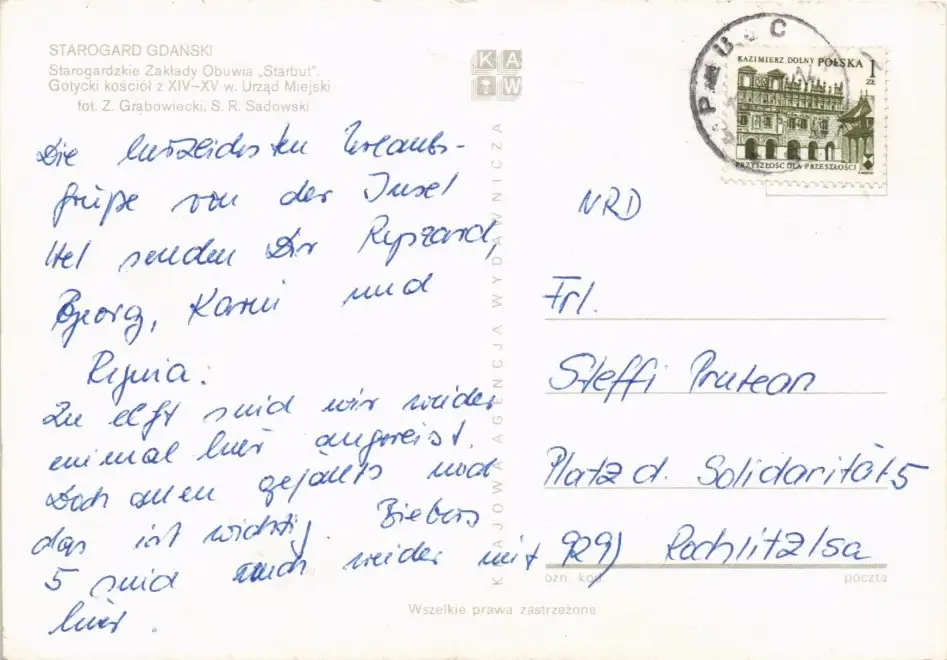 STAROGARD GDAŃSKI
Starogardzkie Zakłady Obuwia „Starbut".
Gotycki kościół z XIV–XV w. Urząd Miejski
fot. Z. Grabowiecki, S. R. Sadowski
KAW
KRAJOWA AGENCJA WYDAWNICZA
PUC
KAZIMIERZ DOLNY POLSKA 1 ZŁ
PRZYSZŁOŚĆ DLA PRZESZŁOŚCI
Die herzlichsten Urlaubs-
grüße von der Insel
Hel senden Dir Ryszard,
Georg, Karin und
Regina.
Zu elft sind wir wieder
einmal hier angereist.
Doch allen gefällts und
das ist wichtig. Biebers
5 sind auch wieder mit
hier.
NRD
Frl.
Steffi Prutean
Platz d. Solidarität 5
929) Rochlitz/Sa
ozn. kod.
poczta
Wszelkie prawa zastrzeżone